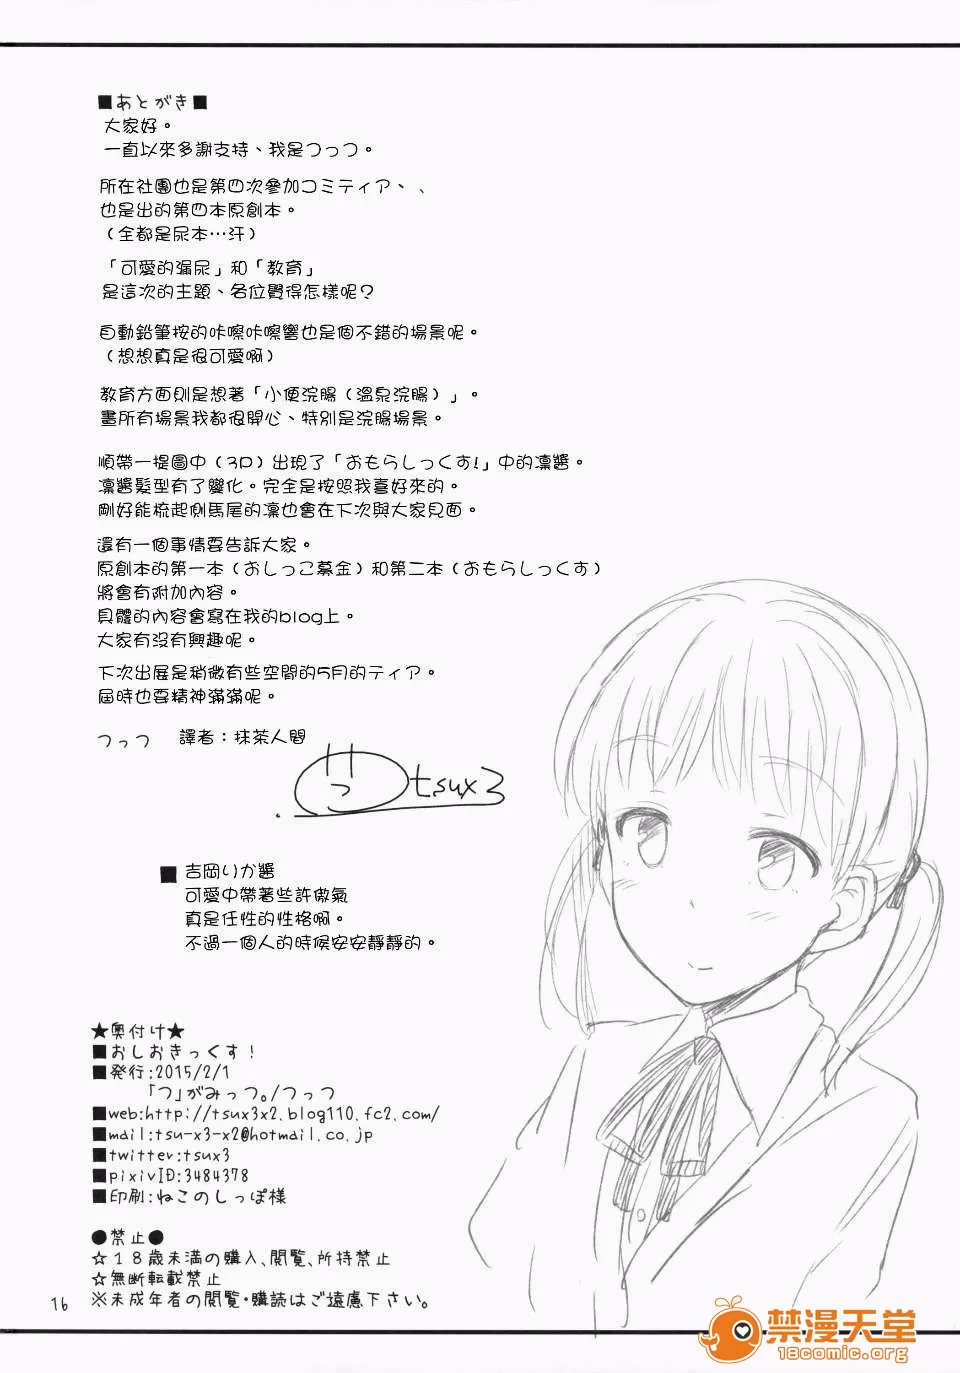 ■あとがき■
大家好。
一直以來多謝支持、我是つっつ。
所在社團也是第四次參加コミティア、、
也是出的第四本原創本。
（全都是尿本…汗）
「可愛的漏尿」和「教育」
是這次的主題、各位覺得怎樣呢？
自動鉛筆按的咔嚓咔嚓響也是個不錯的場景呢。
（想想真是很可愛啊）
教育方面則是想著「小便浣腸（溫泉浣腸）」。
畫所有場景我都很開心、特別是浣腸場景。
順帶一提圖中（3P）出現了「おもらしっくす!」中的凜醬。
凜醬髮型有了變化。完全是按照我喜好來的。
剛好能梳起側馬尾的凜也會在下次與大家見面。
還有一個事情要告訴大家。
原創本的第一本（おしっこ募金）和第二本（おもらしっくす）
將會有附加內容。
具體的內容會寫在我的blog上。
大家有沒有興趣呢。
下次出展是稍微有些空間的5月的ティア。
屆時也要精神滿滿呢。
つっつ 譯者：抹茶人間
つ tsux3
■吉岡りか醬
可愛中帶著些許傲氣
真是任性的性格啊。
不過一個人的時候安安靜靜的。
★奥付け★
■おしおきっくす！
■発行:2015/2/1
「つ」がみっつ。/つっつ
■web:http://tsux3x2.blog110.fc2.com/
■mail:tsu-x3-x2@hotmail.co.jp
■twitter:tsux3
■pixivID:3484378
■印刷:ねこのしっぽ様
●禁止●
☆１８歳未満の購入、閲覧、所持禁止
☆無断転載禁止
※未成年者の閲覧・購読はご遠慮下さい。
16
禁漫天堂
18comic.org